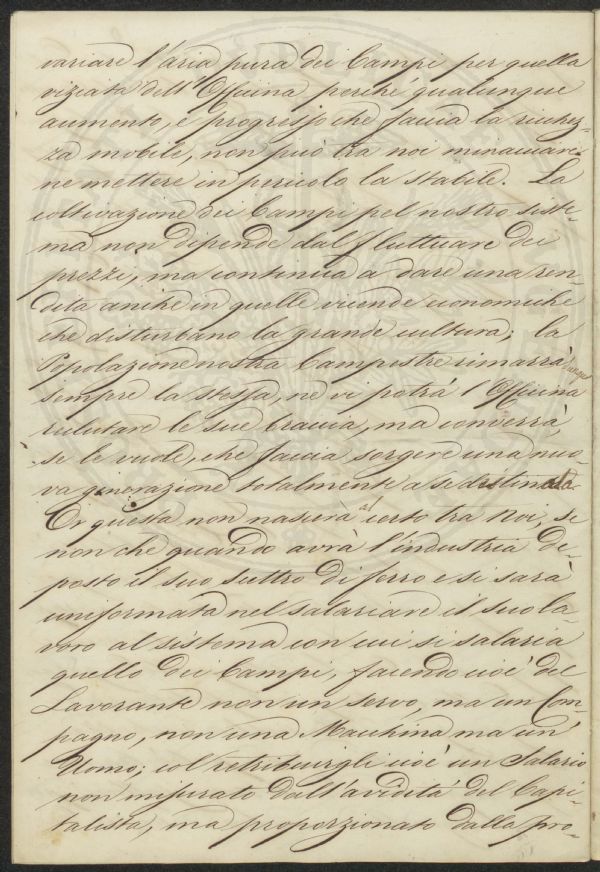 variare l'aria pura dei Campi per quella
viziata dell'Officina perché qualunque
aumento, e progresso che faccia la ricchez-
za mobile, non può tra noi minacciare
ne mettere in pericolo la stabile. La
coltivazione dei Campi pel nostro siste-
ma non dipende dal fluttuare dei
prezzi, ma continua a dare una ren-
dita anche in quelle vicende economiche
che disturbano la grande cultura; la
Popolazione nostra Campestre rimarrà
sempre la stessa, ne vi potrà l'Officina
reclutare le sue braccia, ma converrà
se le vuole, che faccia sorgere una nuo-
va generazione totalmente a se destinata.
Or questa non nascerà al certo tra noi, se
non che quando avrà l'industria de-
posto il suo scettro di ferro e si sarà
uniformata nel salariare il suo la-
voro al sistema con cui si salaria
quello dei Campi, facendo cioè del
Lavorante non un servo, ma un Com-
pagno, non una Macchina ma un
Uomo; col retribuirgli cioè un Salario
non misurato dall'avidità del Capi-
talista, ma proporzionato dalla pro-